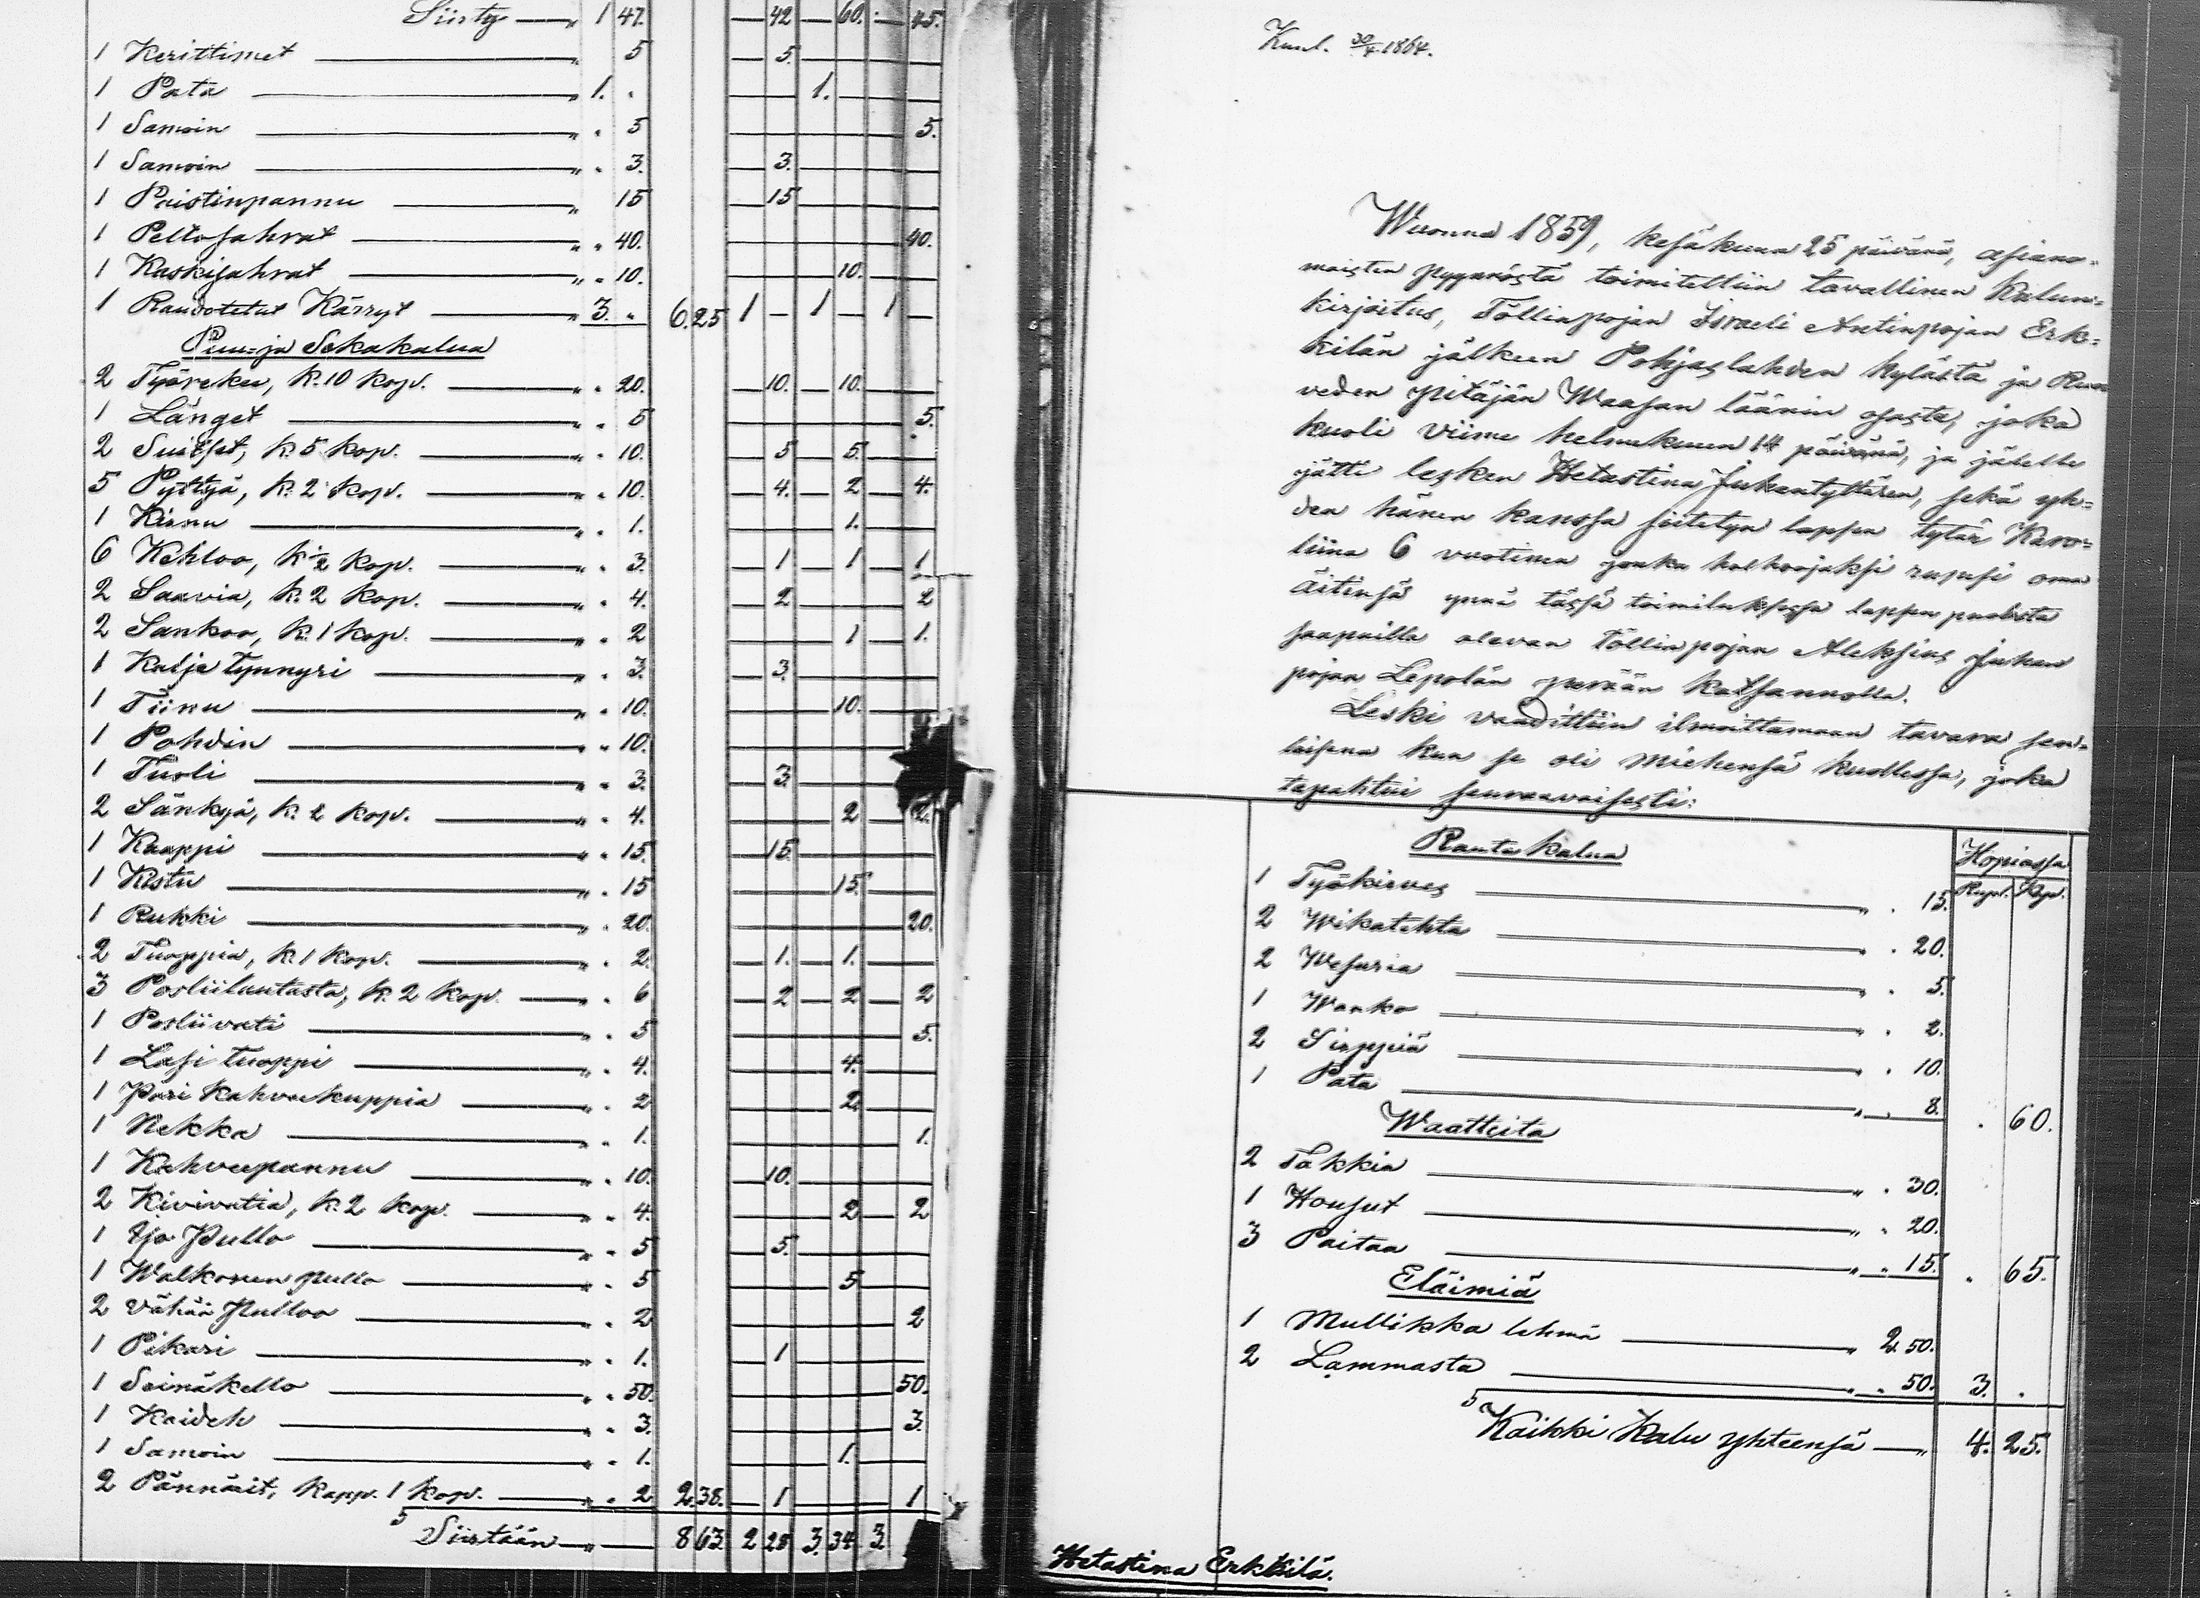 Siirty — „ 1 47. 42 60. 45.
1 Kerittimet — „ 5 5.
1 Pata — „ 1. „ 1.
1 Samoin — „ „ 5 5.
1 Samoin — „ „ 3. 3.
1 Paistinpannu — „ 15 15
1 Peltosahrat — „ „ 40. 40.
1 Kaskisahrat — „ „ 10. 10.
1 Raudotetut Kärryt — „ 3. „ 6.25 1 1 1
Puu- ja Sekakalua
2 Työrekee, k. 10 kop. — „ „ 20. 10. 10.
1 Länget — „ „ 5 5.
2 Suitset, k. 5 kop. — „ „ 10. 5 5.
5 Pyttyä, k. 2 kop. — „ „ 10. 4. 2 4.
1 Kirnu — „ „ 1. 1.
6 Kehloo, k. ½ kop. — „ „ 3. 1 1 1
2 Saavia, k. 2 kop. — „ „ 4. 2 2
2 Sankoo, k. 1 kop. — „ „ 2 1 1.
1 Kalja tynnyri — „ „ 3. 3.
1 Tiinu — „ „ 10. 10.
1 Pohdin — „ „ 10.
1 Tuoli — „ „ 3. 3.
2 Sänkyä, k. 2 kop. — „ „ 4. 2 2.
1 Kaappi — „ „ 15. 15.
1 Kistu — „ „ 15 15.
1 Rukki — „ „ 20. 20.
2 Tuoppia, k. 1 kop. — „ „ 2. 1. 1.
3 Posliiluutasta, k. 2 kop. — „ „ 6 2 2 2
1 Posliivati — „ „ 5 5.
1 Lasi tuoppi — „ „ 4. 4.
1 Pari Kahveekuppia — „ „ 2 2.
1 Nekka — „ „ 1. 1.
1 Kahveepannu — „ „ 10. 10.
2 Kivivatia, k. 2 kop. — „ „ 4. 2 2
1 Iso Pullo — „ „ 5 5.
1 Walkonen pullo — „ „ 5 5
2 Vähää Pulloo — „ „ 2 2
1 Pikari — „ „ 1. 1
1 Seinäkello — „ „ 50. 50.
1 Kaideh — „ „ 3. 3.
1 Samoin — „ „ 1. 1.
2 Pännäit, kapp. 1 kop. — „ „ 2 2.38. 1 1
Siirtään — „ 8 63 2 28 3. 34 3.
Kuul. 30/4 1864.
Wuonna 1859, kesäkuun 25 päivänä, asiano-
maisten pyynnöstä toimitettiin tavallinen Kalun-
kirjoitus, Töllinpojan Israeli Antinpojan Erk-
kilän jälkeen Pohjaslahden kylästä ja Ruo
veden pitäjän Waasan läänin osasta, joka
kuoli viime helmikuun 14 päivänä, ja jälelle
jätti lesken Hetastina Jukantyttären, sekä yh-
den hänen kanssa siitetyn lapsen tytär Karo-
liina 6 vuotinen jonka holhoojaksi rupesi oma
äitinsä ynnä tässä toimituksessa lapsen puolesta
saapuilla olevan töllinpojan Aleksius Juhan
pojan Lepolän perään katsannolla.
Leski vaadittiin ilmoittamaan tavara sen-
laisena kun se oli miehensä kuollessa, joka
tapahtui seuraavaisesti:
Rauta kalua Hopiassa
Rupl. Kop.
1 Työkirves — „ „ 15.
2 Wikatehta — „ „ 20.
2 Wesuria — „ „ 5.
1 Wanko — „ „ 2.
2 Sirppiä — „ „ 10.
1 Pata — „ „ 8. „ 60.
Waatteita
2 Takkia — „ „ 30.
1 Housut — „ „ 20.
3 Paitaa — „ „ 15. „ 65.
Eläimiä
1 Mullikka lehmä — „ 2. 50.
2 Lammasta — „ „ 50. 3. „
Kaikki kalu yhteensä — „ 4. 25.
Hetastina Erkkilä.